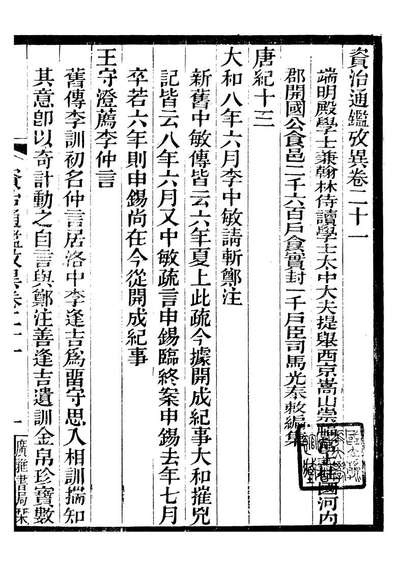 資治通鑑攷異卷二十一
端明殿學士兼翰林侍讀學士太中大夫提舉西京嵩山崇福宮上柱國河內
郡開國公食邑二千六百戶食實封一千戶臣司馬光奉敕編集
唐紀十三
大和八年六月李中敏請斬鄭注
新舊中敏傳皆云六年夏上此疏今據開成紀事大和摧兇
記皆云八年六月又中敏疏言申錫臨終案申錫去年七月
卒若六年則申錫尚在今從開成紀事
王守澄薦李仲言
舊傳李訓初名仲言居洛中李逢吉爲畱守思入相訓揣知
其意卽以奇計動之自言與鄭注善逢吉遺訓金帛珍寶數
資治通鑑攷異卷二十一
一
廣雅書局栞